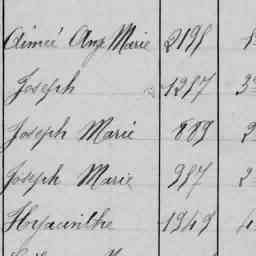 Aimeé Ang Marie 2191
Joseph 1287
Joseph Marie 889
Joseph Marie 987
Hyacinthe 1949